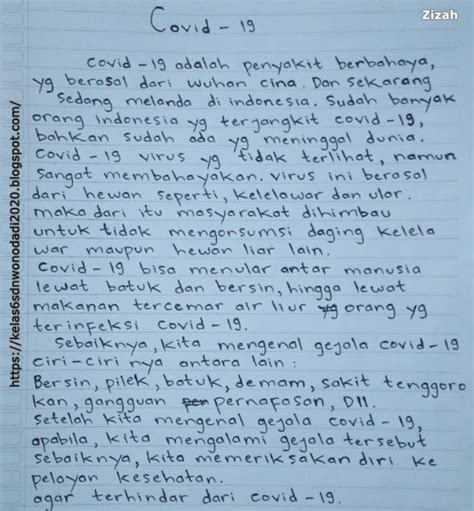 Zizah
Covid - 19
Covid - 19 adalah penyakit berbahaya,
yg berasal dari wuhan cina. Dan Sekarang
Sedang melanda di indonesia. Sudah banyak
orang indonesia yg terjangkit covid - 19,
bahkan sudah ada yg meninggal dunia.
Covid - 19 virus yg tidak terlihat, namun
sangat membahayakan. virus ini berasal
dari hewan seperti, kelelawar dan ular.
maka dari itu masyarakat dihimbau
untuk tidak mengonsumsi daging kelela
war maupun hewan liar lain.
Covid - 19 bisa menular antar manusia
lewat batuk dan bersin, hingga lewat
makanan tercemar air liur yg orang yg
terinfeksi covid - 19.
Sebaiknya, kita mengenal gejala covid - 19
ciri - ciri nya antara lain :
Bersin, pilek, batuk, demam, sakit tenggoro
kan, gangguan per pernafasan, Dll.
setelah kita mengenal gejala covid - 19,
apabila, kita mengalami gejala tersebut
sebaiknya, kita memeriksakan diri ke
pelayan kesehatan.
agar terhindar dari covid - 19.
https://kelas6sdnwonodadi2020.blogspot.com/